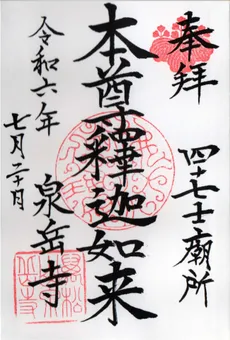 奉拝
四十七士廟所
本尊釋迦如来
令和六年
七月二十日
泉岳寺